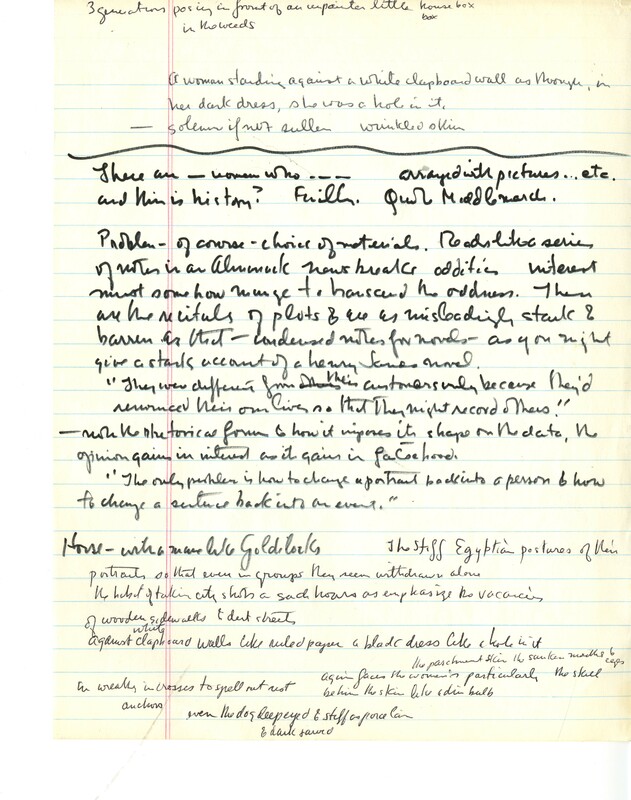 3 generations posing in front of an unpainted little house box
box
in the weeds
A woman standing against a white clapboard wall as though, in
her dark dress, she was a hole in it.
— solemn if not sullen wrinkled skin
There are — women who - - - arrayed with pictures... etc.
and this is history? Finally. Quote Middlemarch.
Problem - of course - choice of materials. Reads like a series
of notes in an Almanack news breaks oddities interest
must somehow manage to transcend the oddness. There
are the recitals of plots & are as misleadingly stark &
barren as that - condensed notes for novels - as you might
give a stark account of a Henry James novel.
"They were different from their customers only because they'd
renounced their own lives so that they might record others."
— note the rhetorical form & how it imposes its shape on the data, the
opinion gains in interest as it gains in falsehood.
"The only problem is how to change a portrait back into a person & how
to change a sentence back into an event."
House - with a name like Goldilocks The stiff Egyptian postures of their
portraits so that even in groups they seem withdrawn alone
the habit of taking city shots at such hours as emphasize the vacancies
of wooden sidewalks & dirt streets
white
against clapboard walls like ruled paper a black dress like a hole in it
the parchment skin the sunken mouths &
caps
again faces the women's particularly the skull
in wreaths in crosses to spell out rest behind the skin like a dim bulb
anchors
even the dog deep eyed & stiff as porcelain
& dark